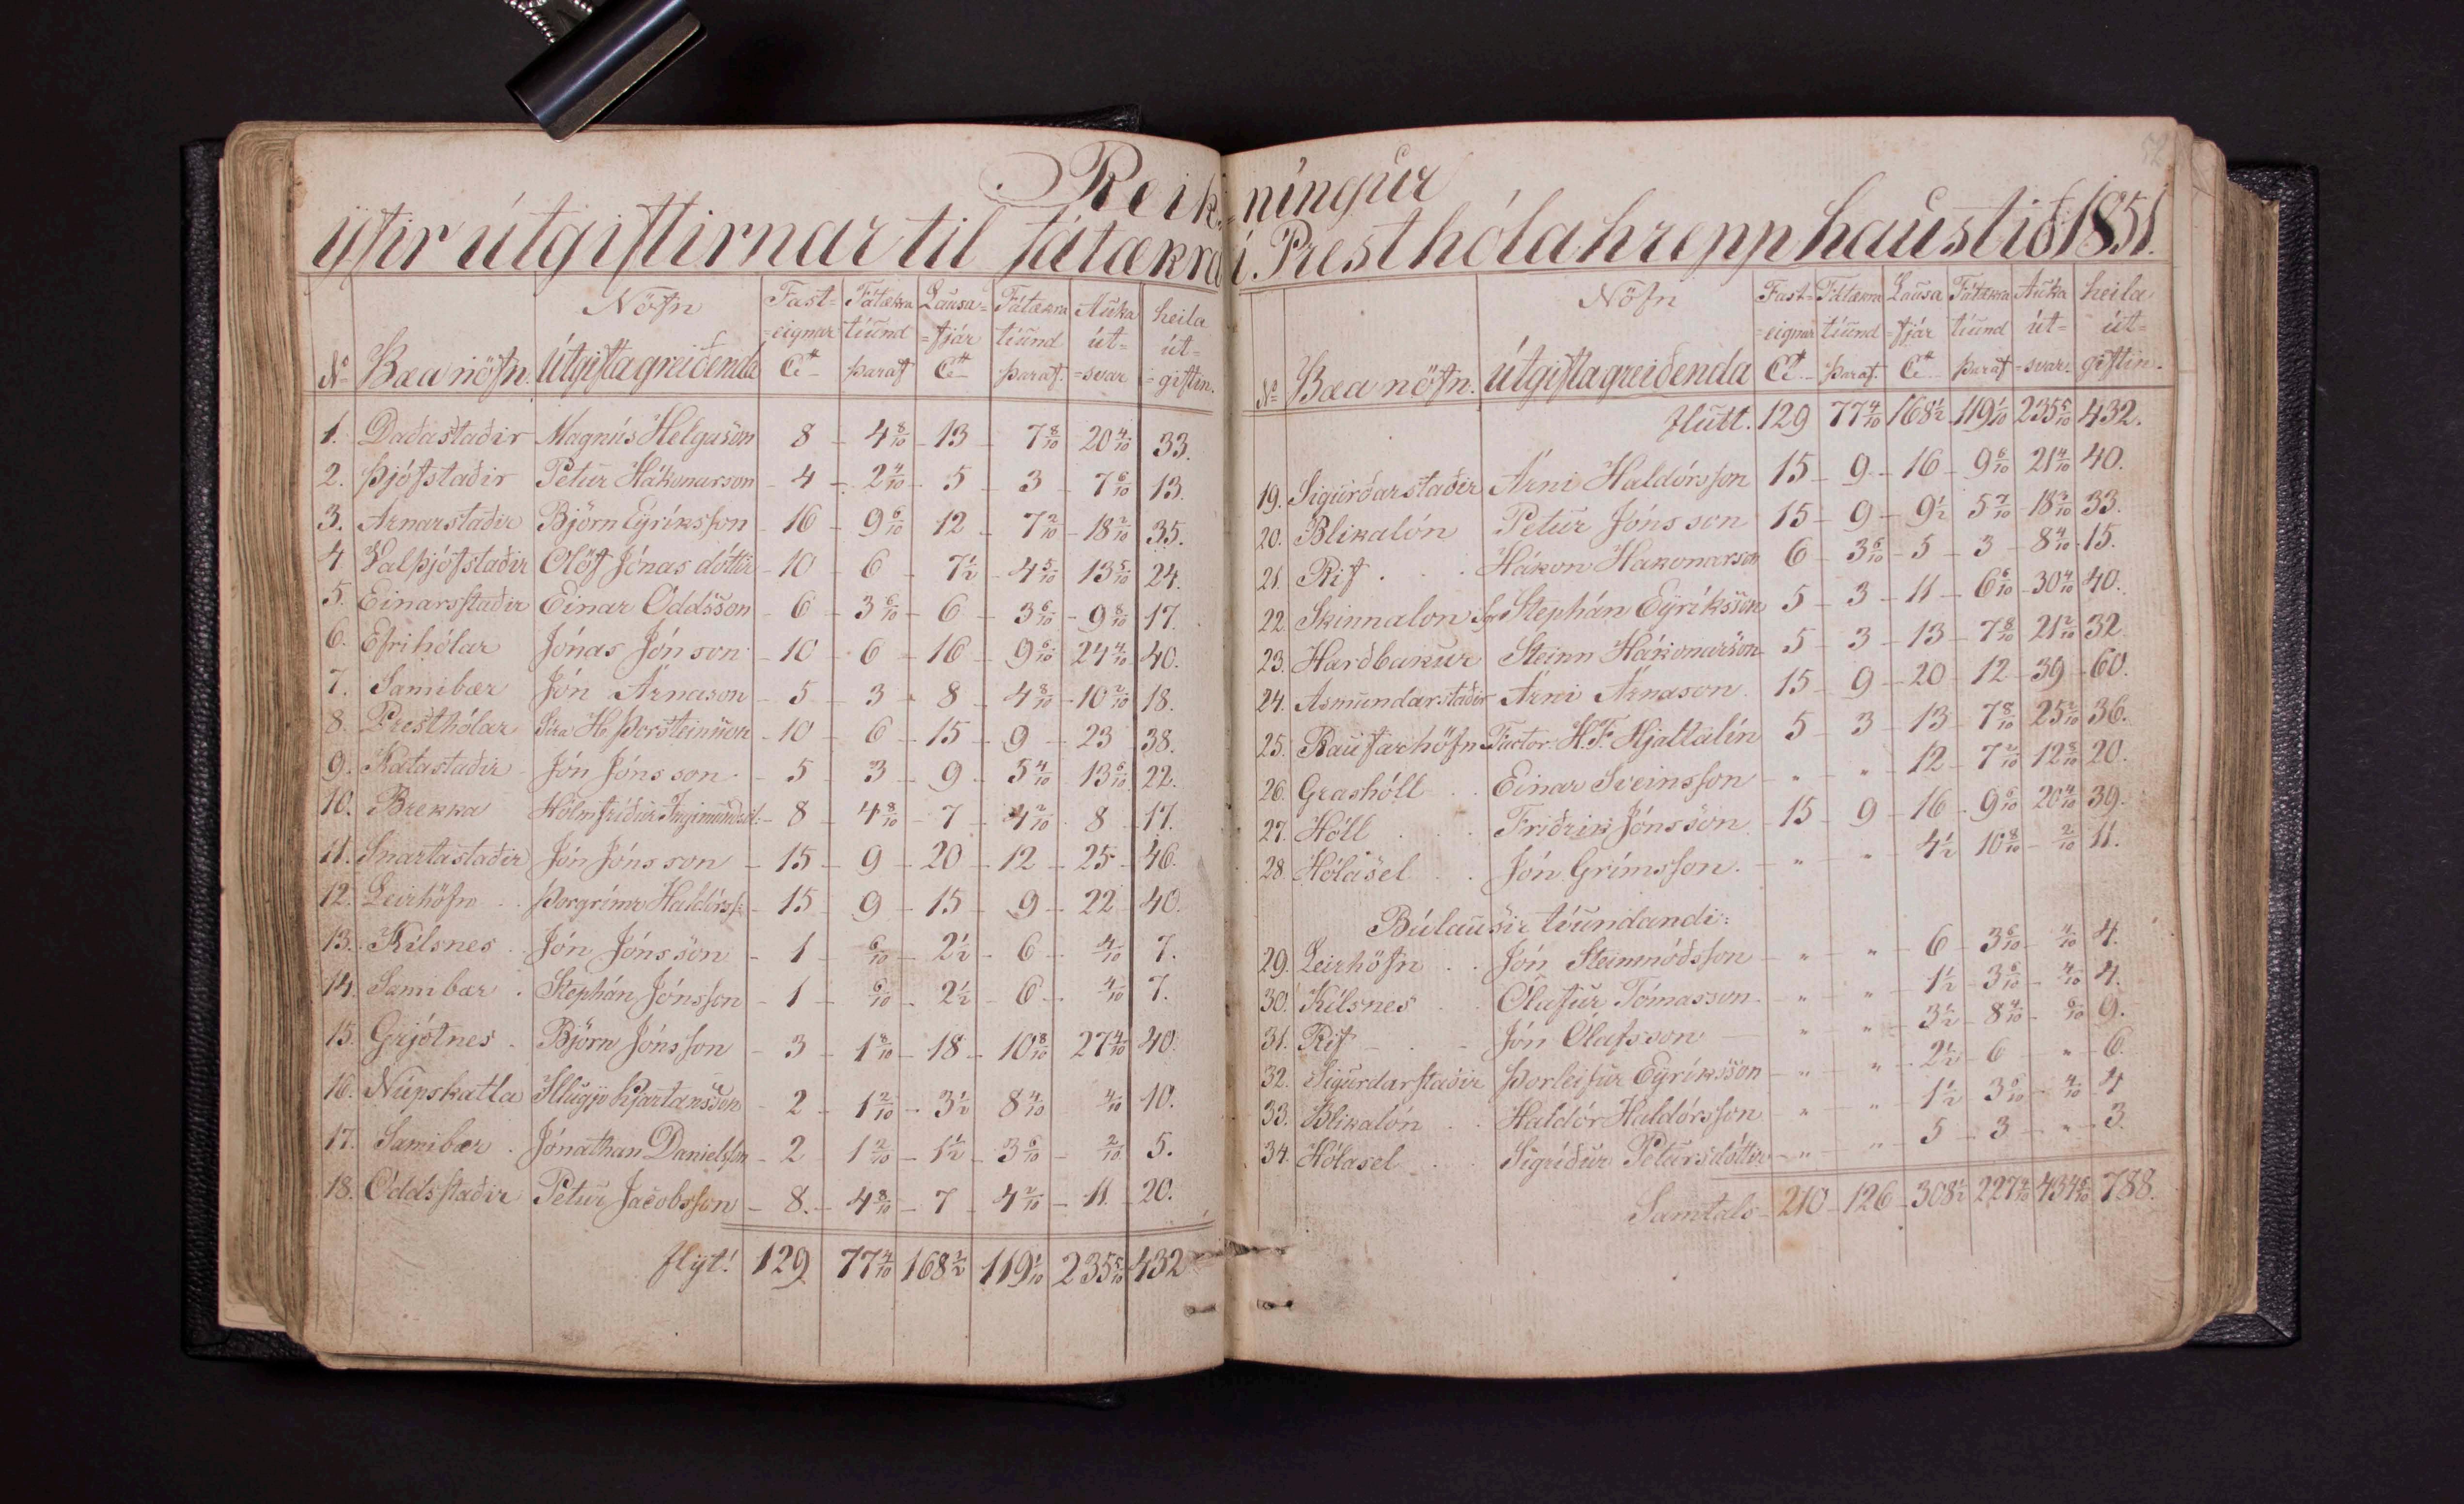 Reikningur
yfir útgiftirnar til fátækra í Presthólahrepp haustið 1851.
Nöfn Fast= Fátækra Lausa= Fátækra Auka heila
=eignar tíund =fjár tíund út= út=
No Bæa nöfn. Útgiftagreiðenda Ct þaraf Ct þaraf. =svar =giftin.
1. Daðastaðir Magnús Helgason 8 - 4 8/10 - 13 - 7 8/10 20 4/10 33.
2. Þjófstaðir Petur Hákonarson - 4 - 2 4/10 - 5 - 3 - 7 6/10 13.
3. Arnarstaðir Björn Eyríksson - 16 - 9 6/10 12 - 7 2/10 - 18 2/10 35.
4. Valþjófstaðir Olöf Jónas dóttir - 10 - 6 - 7 1/2 - 4 5/10 13 5/10 24.
5. Einarsstaðir Einar Oddsson - 6 - 3 6/10 - 6 - 3 6/10 - 9 8/10 17.
6. Efrihólar Jónas Jónson - 10 - 6 - 16 - 9 6/10 24 4/10 40.
7. Samibær Jón Árnason - 5 - 3 - 8 - 4 8/10 - 10 2/10 18.
8. Presthólar Síra H. Þorsteinsson - 10 - 6 - 15 - 9 - 23 38.
9. Katastaðir Jón Jónsson - 5 - 3 - 9 - 5 4/10 - 13 6/10 22.
10. Brekka Hólmfríður Ingimundsd: - 8 - 4 8/10 - 7 - 4 2/10 - 8 - 17.
11. Snartastaðir Jón Jónsson - 15 - 9 - 20 - 12 - 25 - 46.
12. Leirhöfn . . Þorgrímr Haldórss: - 15 - 9 - 15 - 9 - 22 40.
13. Kílsnes . Jón Jónsson - 1 - 6/10 - 2 1/2 - 6 - 4/10 7.
14. Samibær . Stephán Jónsson - 1 - 6/10 - 2 1/2 - 6 - 4/10 7.
15. Grjótnes . Björn Jónsson - 3 - 1 8/10 - 18 - 10 8/10 27 4/10 40.
16. Núpskatla Illugji Kjartansson - 2 - 1 2/10 - 3 1/2 8 4/10 4/10 10.
17. Samibær . Jónathan Danielsson - 2 1 2/10 - 1 1/2 - 3 6/10 - 2/10 5.
18. Oddsstaðir Petur Jacobsson - 8. - 4 8/10 - 7 - 4 2/10 - 11 - 20.
flyt! 129 77 4/10 168 1/2 119 1/10 235 5/10 432
Nöfn Fast= Fátækra Lausa Fátækra Auka heila
=eignar tíund =fjár tíund út= út=
No Bæa nöfn. Útgiftagreiðenda Ct þaraf. Ct þaraf =svar. giftin.
Flutt. 129 77 4/10 168 1/2 119 1/10 235 5/10 432.
19. Sigurðarstaðir Árni Haldórsson 15 - 9 - 16 - 9 6/10 21 4/10 40.
20. Blikalón Petur Jónsson 15 - 9 - 9 1/2 5 7/10 - 18 3/10 33.
21. Rif . . Hákon Hakonarson 6 - 3 6/10 - 5 - 3 - 8 4/10 15.
22. Skinnalon Sr Stephán Eyríksson 5 - 3 - 11 - 6 6/10 - 30 4/10 40.
23. Harðbakur Steinn Hákonarson 5 - 3 - 13 - 7 8/10 21 2/10 32
24. Asmundarstaðir Árni Árnason 15 - 9 - 20 - 12 - 39 - 60.
25. Raufarhöfn Factor: H.F. Hjaltalín 5 - 3 - 13 - 7 8/10 25 2/10 36.
26. Grashóll . . Einar Sveinsson - " - " - 12 - 7 2/10 12 8/10 20.
27. Hóll . . Friðrik Jónsson - 15 - 9 - 16 - 9 6/10 20 4/10 39.
28. Hólasel . . Jón Grímsson. - " - " - 4 1/2 10 8/10 - 2/10 11.
Búlausir tíundandi:
29. Leirhöfn . . Jón Steinmóðsson - " - " - 6 - 3 6/10 - 4/10 4.
30. Kílsnes . . Ólafur Tómasson - " - " - 1 1/2 - 3 6/10 - 4/10 4.
31. Rif - . - Jón Ólafsson - " - " - 3 1/2 - 8 4/10 - 6/10 9.
32. Sigurdarstaðir Þorleifur Eyríksson - " - " - 2 1/2 - 6 - " - 6.
33. Blikalón . . Haldór Haldórsson - " - " - 1 1/2 3 6/10 - 4/10 4
34. Hólasel . . Sigríður Petursdóttir - " - " - 5 - 3 - " - 3.
Samtals - 210 - 126 - 308 1/2 227 4/10 434 6/10 788.